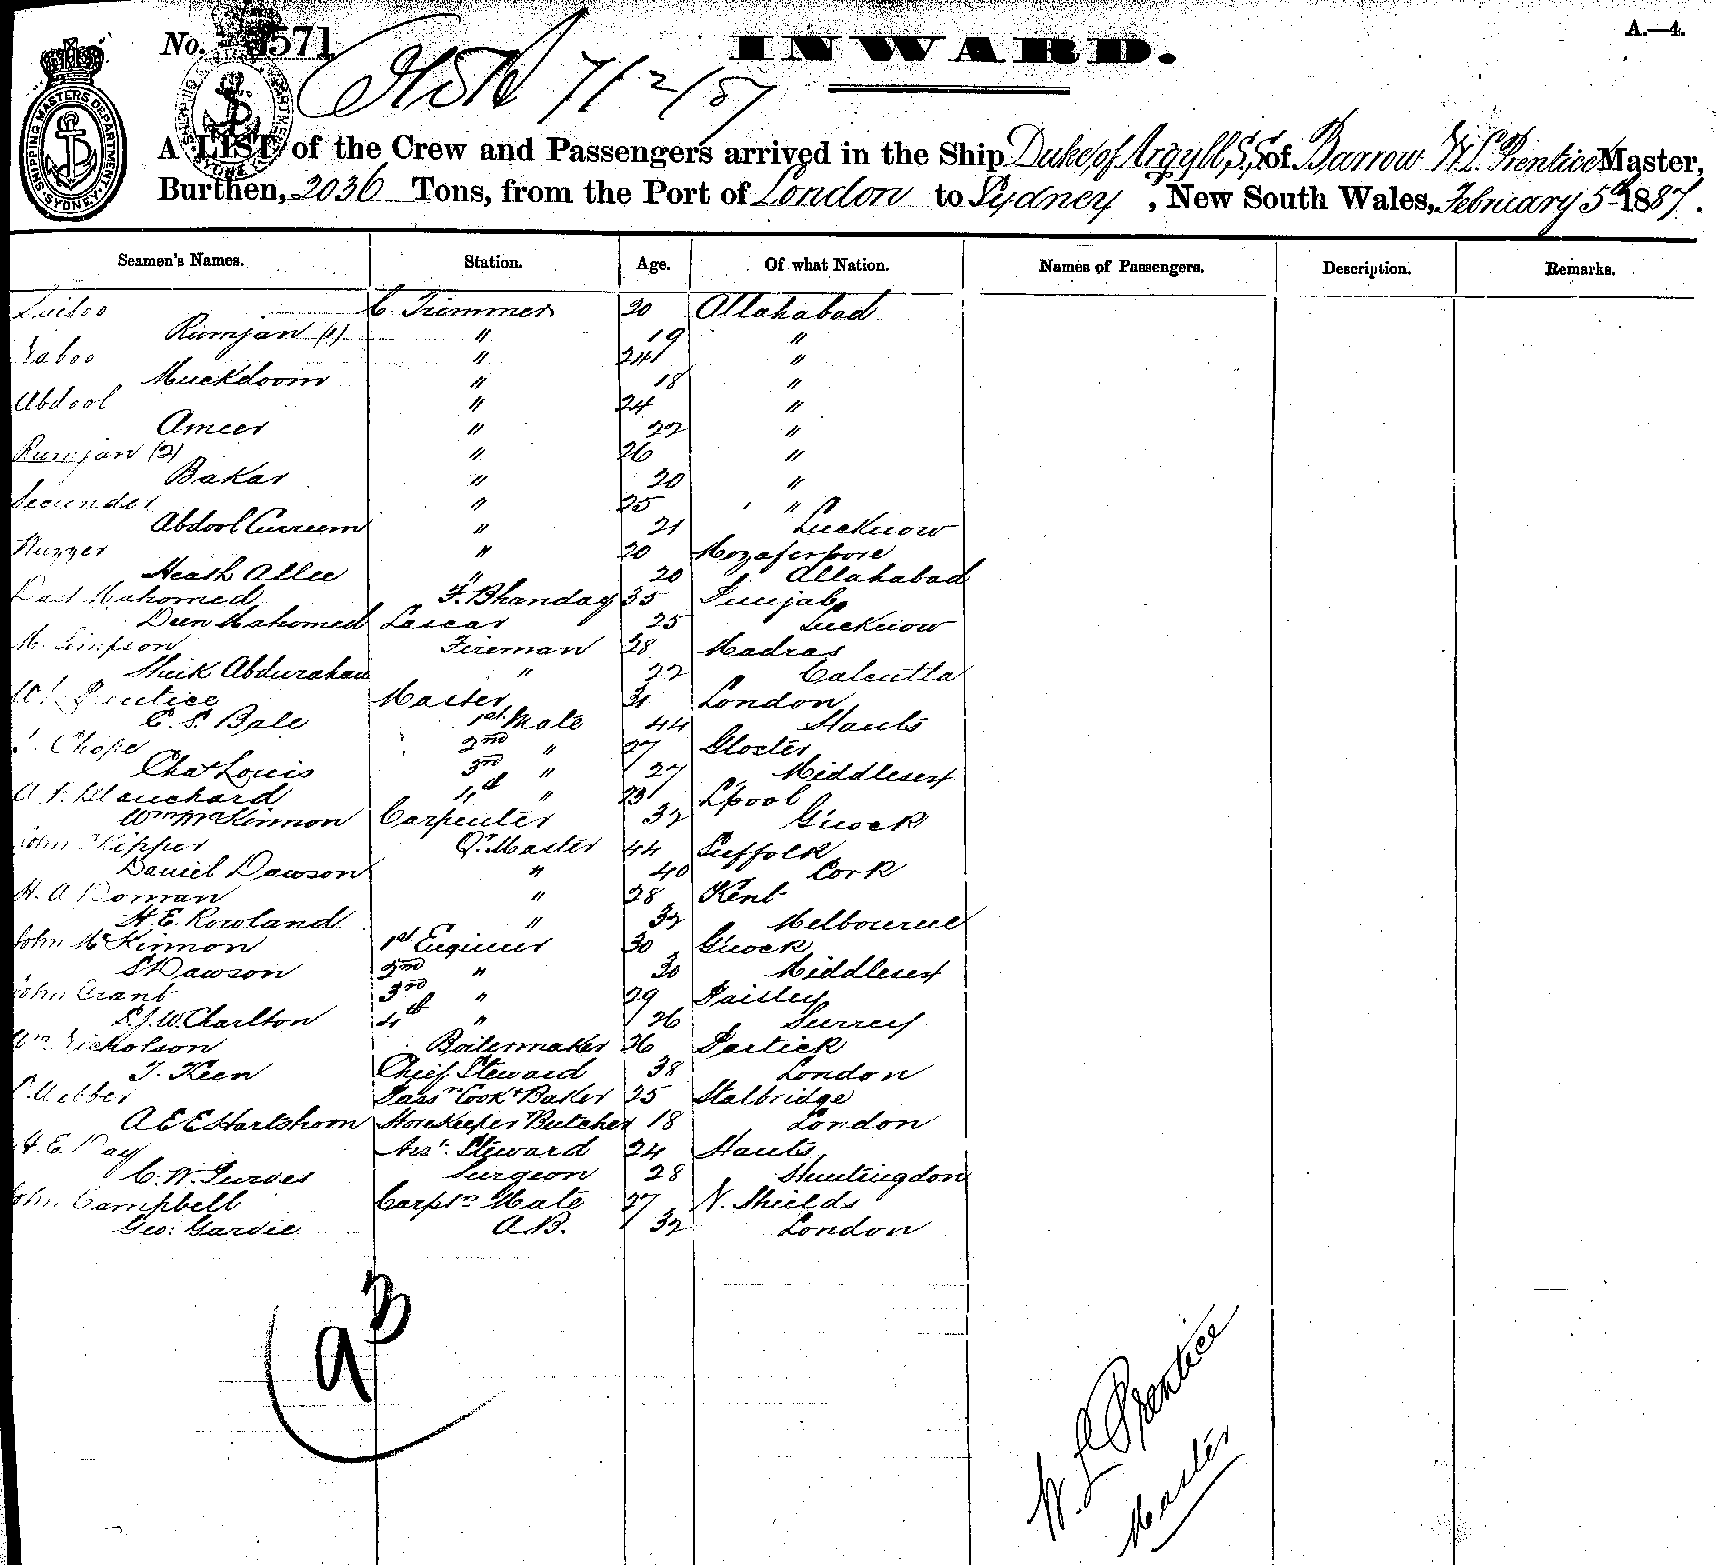 No. 1571
INWARD.
A.—4.
7/2/87
SHIPPING MASTERS DEPARTMENT SYDNEY
A LIST of the Crew and Passengers arrived in the Ship Duke of Argyll, S.S. of Barrow W. L. Prentice Master,
Burthen, 2036 Tons, from the Port of London to Sydney, New South Wales, February 5th 1887.
Seamen's Names. Station. Age. Of what Nation. Names of Passengers. Description. Remarks.
C. Trimmer 20 Allahabad
Rumjan (1) " 19 "
" 24 "
Muckdoom " 18 "
Abdool " 24 "
Ameer " 22 "
Rumjan (2) " 26 "
Bakar " 20 "
Secunder " 25 "
Abdool Curreem " 21 Lucknow
" 20 Mozaferpore
Heash Allee " 20 Allahabad
Mahomed F. Bhanday 35 Punjab
Deen Mahomed Lascar 25 Lucknow
M. Simpson Fireman 28 Madras
Sheik Abdurahan " 22 Calcutta
W. L. Prentice Master 31 London
C. S. Bale 1st Mate 44 Hants
Chope 2nd " 27 Gloster
Chas Louis 3rd " 27 Middlesex
Blanchard 4th " 23 L'pool
Wm McKinnon Carpenter 32 G'nock
John Kipper Qr. Master 44 Suffolk
Daniel Dawson " 40 Cork
H. A. Doman " 28 Kent
H. E. Rowland " 32 Melbourne
John McKinnon 1st Engineer 30 G'nock
S Dawson 2nd " 30 Middlesex
John Grant 3rd " 29 Paisley
S. J. W. Charlton 4th " 26 Surrey
Wm Nicholson Boilermaker 26 Partick
T. Keen Chief Steward 38 London
Webber Passr Cook & Baker 25 Stalbridge
A E E Hartshorn Storekeeper Butcher 18 London
H. E. Day Asst. Steward 24 Hants
C. W. Purves Surgeon 28 Huntingdon
John Campbell Carptrs Mate 27 N. Shields
Geo: Garvie A.B. 32 London
W. L. Prentice
Master